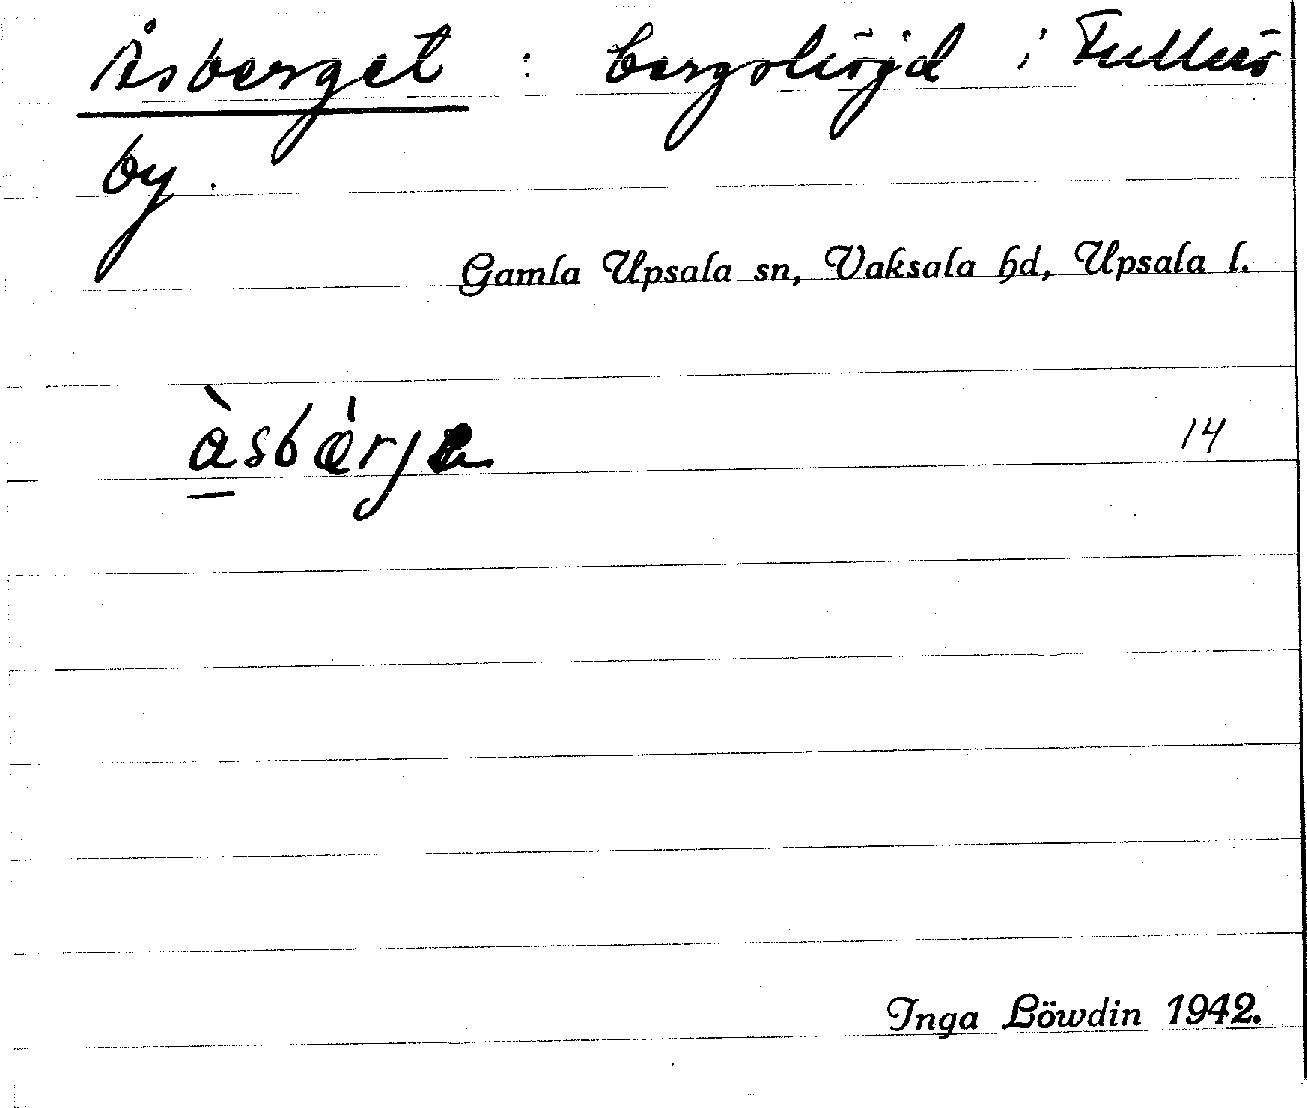 Åsberget : bergshöjd i Fullerö
by.
Gamla Upsala sn, Vaksala hd, Upsala l.
àsbærje 14
Inga Löwdin 1942.